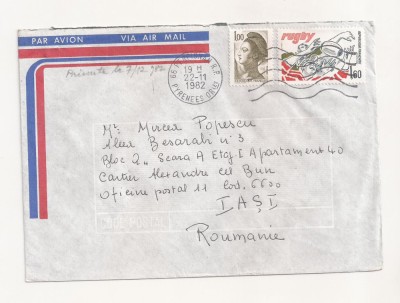 PAR AVION VIA AIR MAIL
19 H
22-11
1982
PYRENEES OR(64)
1,00
rugby
1,60
Mr Mircea Popescu
Alea Basarabi n° 3
Bloc 2, Scara A Etaj E Apartament 40
Cartier Alexandru cel Bun
Oficiul postal 11 Cod. 6600
IAŞI
Roumanie